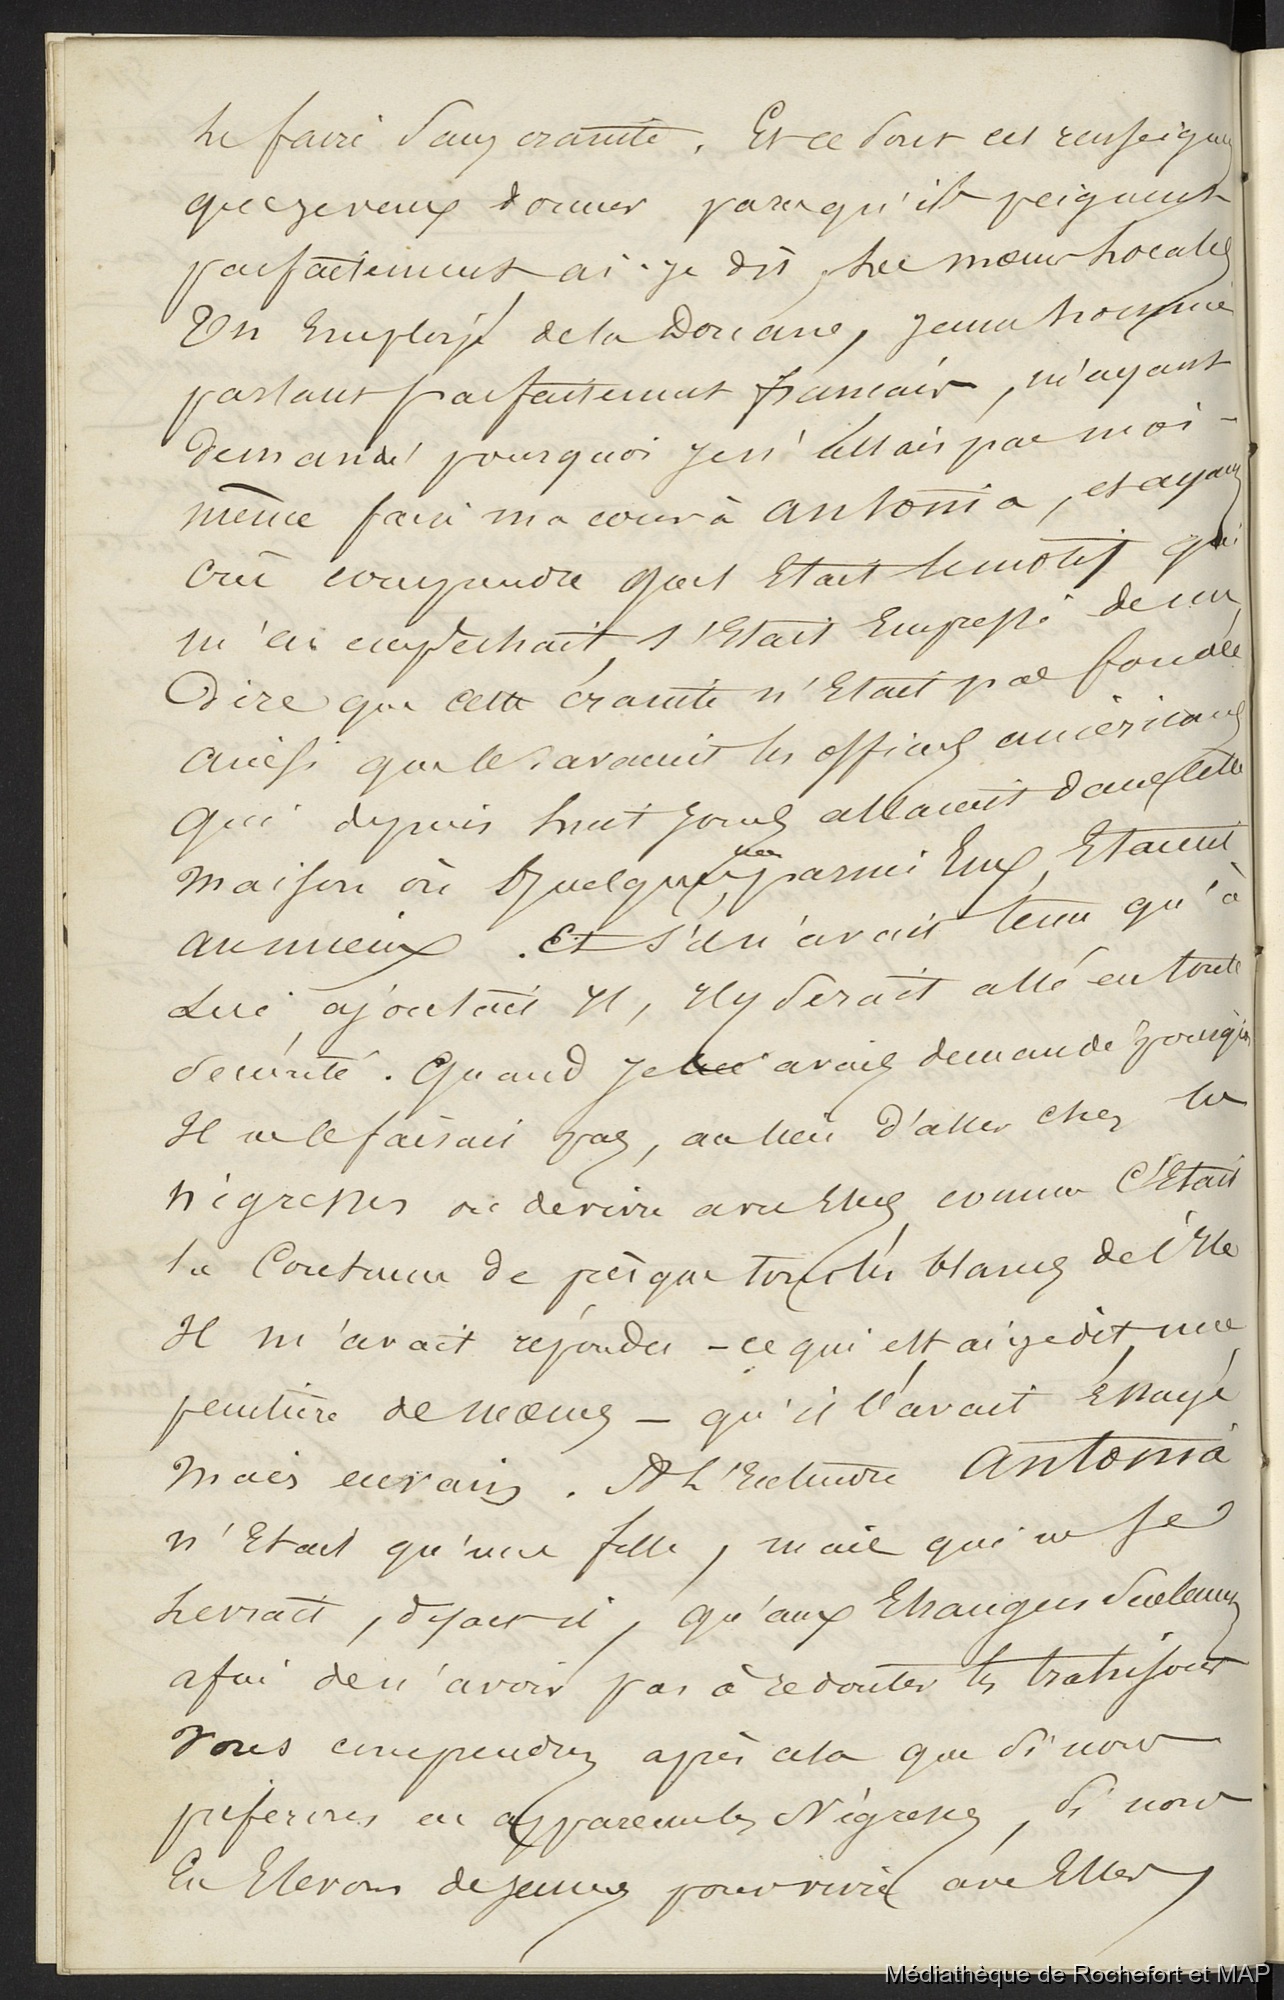 le faire sans crainte. Et ce sont ces renseignem
que je veux donner parcequ'ils peignent
parfaitement ai-je dit, les mœurs locales
Un Employé de la Douane, jeune homme
parlant parfaitement francais, m'ayant
demandé pourquoi je n'allais pas moi-
même faire ma cour à Antonia, et ayant
crû comprendre quel Etait le motif qui
m'en empêchait, s'Etait Empressé de me
Dire que cette crainte n'Etait pas fondée
ainsi que le savaient les officiers américains
qui depuis huit jours allaient dans cette
Maison où quelques uns parmi Eux, Etaient
au mieux. Et s'il n'avait tenu qu'à
Lui, ajoutait il, Il y serait allé en toute
sécurité. Quand je lui avais demandé pourquoi
Il ne le faisait pas, au lieu d'aller chez les
négresses ou de vivre avec Elles comme C'Etait
la Coutume de presque tous les blancs de l'Ile
Il m'avait répondu - ce qui est ai je dit, une
peinture de mœurs - qu'il l'avait Essayé
Mais en vain. A L'Entendre Antonia
n'Etait qu'une fille, mais qui ne se
livrait, disait-il, qu'aux Etrangers seulement
afin de n'avoir pas à redouter les trahisons
Vous comprendrez après cela que si nous
préférons en apparence les Négresses, si nous
En Elevons de jeunes pour vivre avec Elles,
Médiathèque de Rochefort et MAP